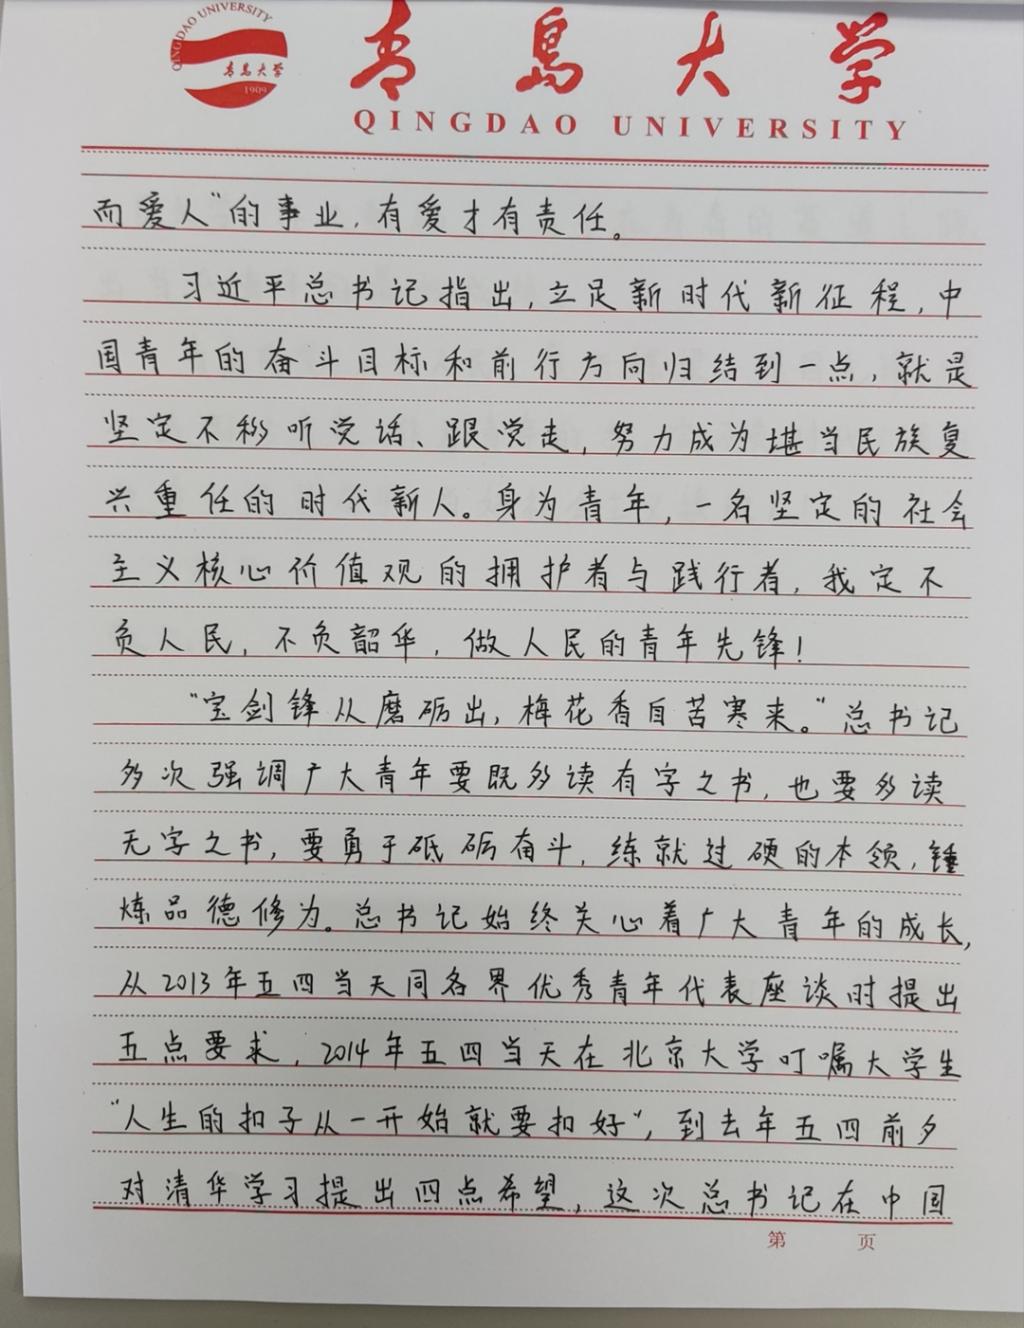 QINGDAO UNIVERSITY
青岛大学
1909
青岛大学
QINGDAO UNIVERSITY
而爱人”的事业，有爱才有责任。
习近平总书记指出，立足新时代新征程，中
国青年的奋斗目标和前行方向归结到一点，就是
坚定不移听党话、跟党走，努力成为堪当民族复
兴重任的时代新人。身为青年，一名坚定的社会
主义核心价值观的拥护者与践行者，我定不
负人民，不负韶华，做人民的青年先锋！
“宝剑锋从磨砺出，梅花香自苦寒来。”总书记
多次强调广大青年要既多读有字之书，也要多读
无字之书，要勇于砥砺奋斗，练就过硬的本领，锤
炼品德修为。总书记始终关心着广大青年的成长，
从2013年五四当天同各界优秀青年代表座谈时提出
五点要求，2014年五四当天在北京大学叮嘱大学生
“人生的扣子从一开始就要扣好”，到去年五四前夕
对清华学习提出四点希望，这次总书记在中国
第 页